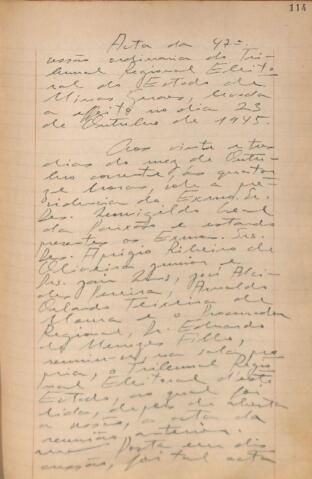 114
Acta da 47ª
sessão ordinaria do Tri-
bunal Regional Eleito-
ral do Estado de
Minas Geraes, levada
a effeito no dia 23
de Outubro de 1945.
Aos vinte e tres
dias do mez de Outu-
bro corrente, ás quator-
ze horas, sob a pre-
sidencia do Exmo. Sr.
Des. Leal
da Paixão e estando
presentes os Exmos. Srs.
Des. Aprigio Ribeiro de
Oliveira Junior e
Drs. José Alci-
des Pereira, Arnaldo
Orlando Teixeira de
Moura e o Procurador
Regional, Dr. Eduardo
de Menezes Filho,
reuniu-se, na sala pro-
pria, o Tribunal Regio-
nal Eleitoral deste
Estado, no qual foi
lida, depois de aberta
a sessão, a acta da
reunião anterior.
Posta em dis-
cussão, foi tal acta